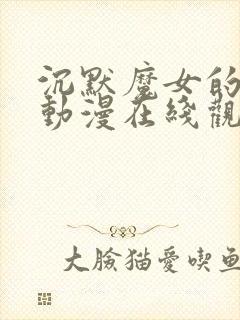 沉默魔女的
動漫在綫觀
大臉猫愛喫鱼